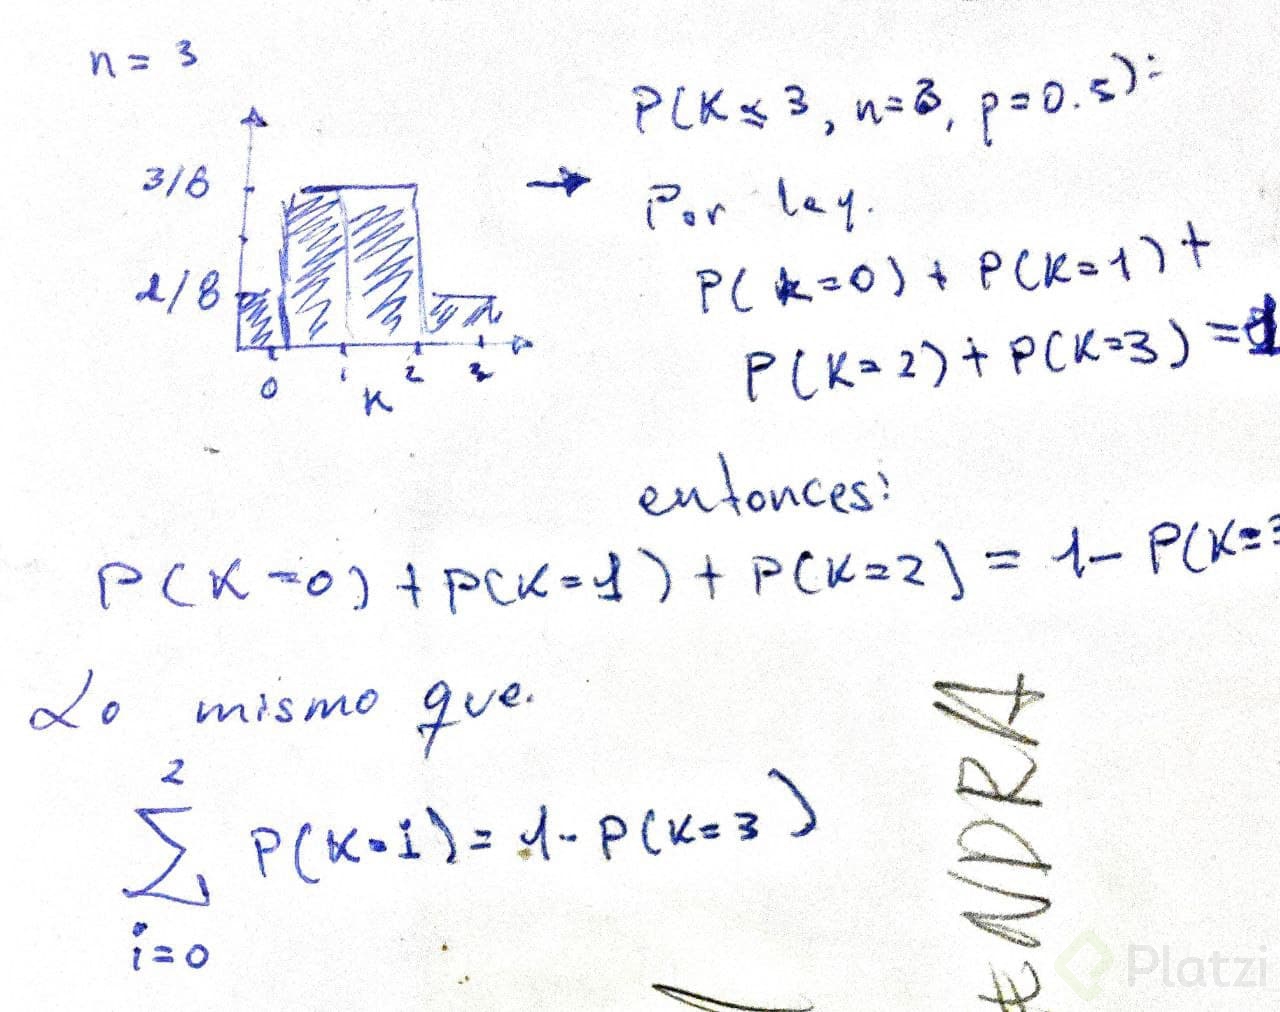 n = 3
3/8
2/8
0 1 2 3
K
P(K ≤ 3, n=3, p=0.5):
Por ley.
P(k=0) + P(K=1) +
P(K=2) + P(K=3) = 1
entonces:
P(K=0) + P(K=1) + P(K=2) = 1 - P(K=3
Lo mismo que.
2
∑ P(K=i) = 1 - P(K=3)
i=0
ENDRA
Platzi